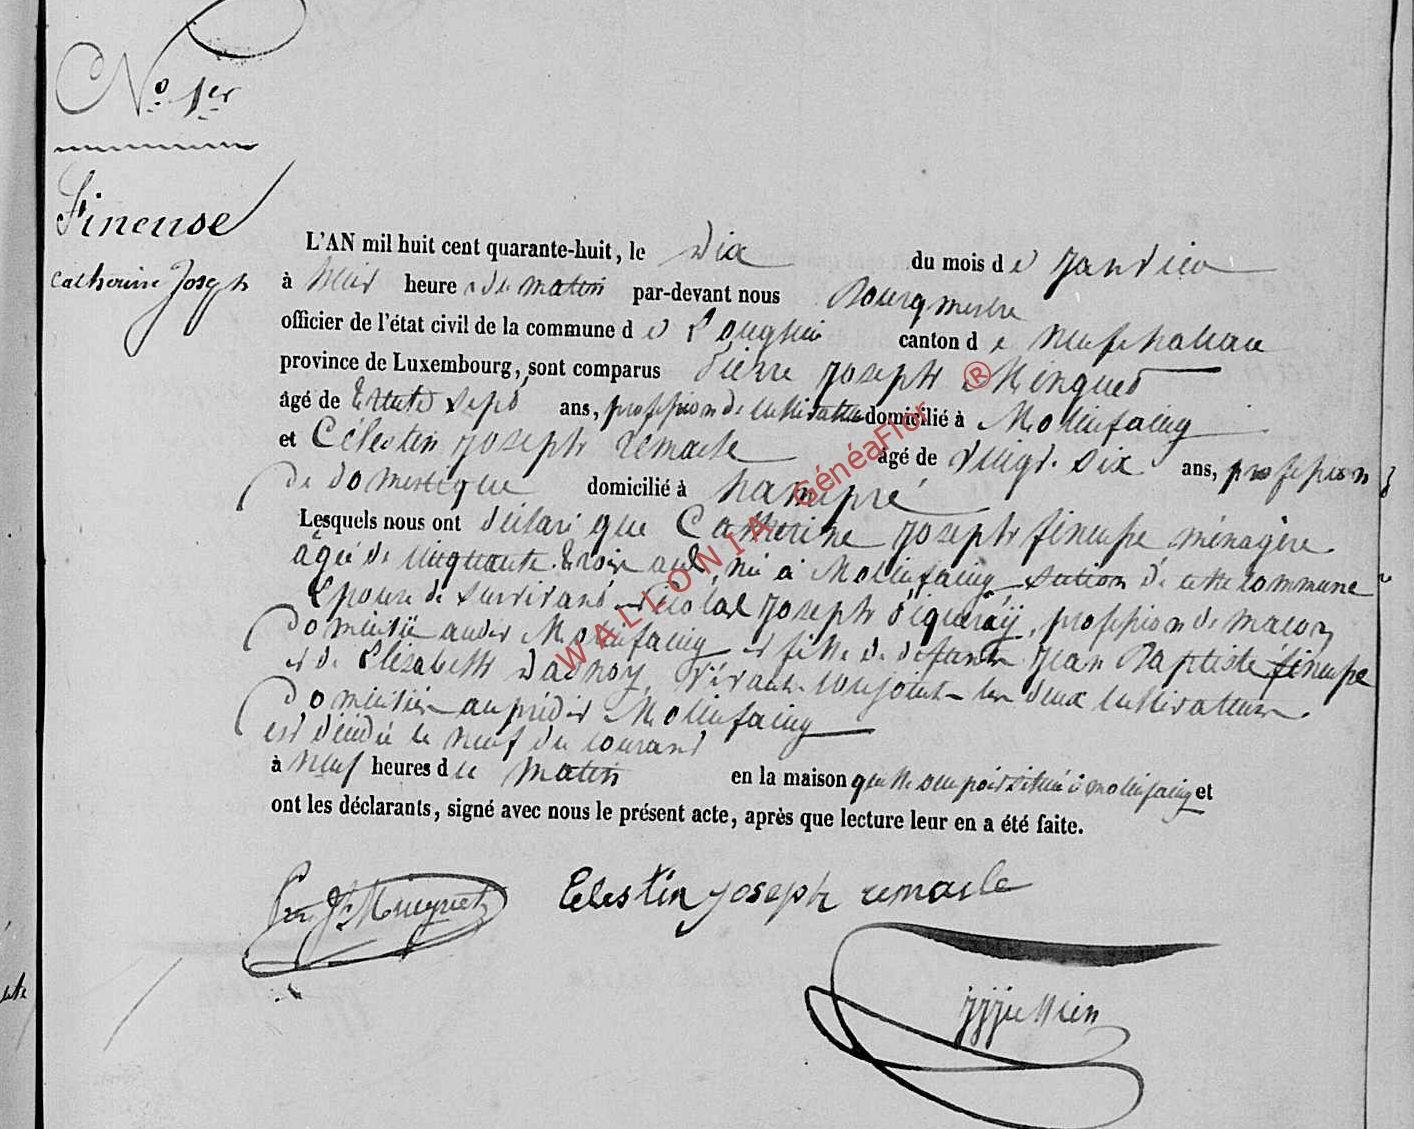 No. 1er
Fineuse
Catherine Joseph
L'AN mil huit cent quarante-huit, le dix du mois de Janvier
à heure du matin par-devant nous Bourgmestre
officier de l'état civil de la commune de Longlier canton de Neufchateau
province de Luxembourg, sont comparus Pierre Joseph Minguet
âgé de trente sept ans, profession de cultivateur domicilié à Molinfaing
et Célestin Joseph remacle âgé de vingt-six ans, profession
de domestique domicilié à hampré
Lesquels nous ont déclaré que Catherine Joseph fineuse ménagère
âgée de cinquante trois ans, née à Molinfaing section de cette commune
Epouse de survivant Nicolas Joseph Piqueray, profession de macon
domicilié audit Molinfaing et fille de défunts Jean Baptiste fineuse
et de Elisabeth Dadnoy, vivant conjoint les deux cultivateurs
domiciliés au prédit Molinfaing
est décédée le neuf du courant
à neuf heures du matin en la maison qu'elle occupoit située à molinfaing et
ont les déclarants, signé avec nous le présent acte, après que lecture leur en a été faite.
Celestin joseph remacle
WALLONIA GénéaFlor ®